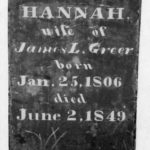 HANNAH,
wife of
James L. Greer
born
Jan. 25, 1806
died
June 2, 1849